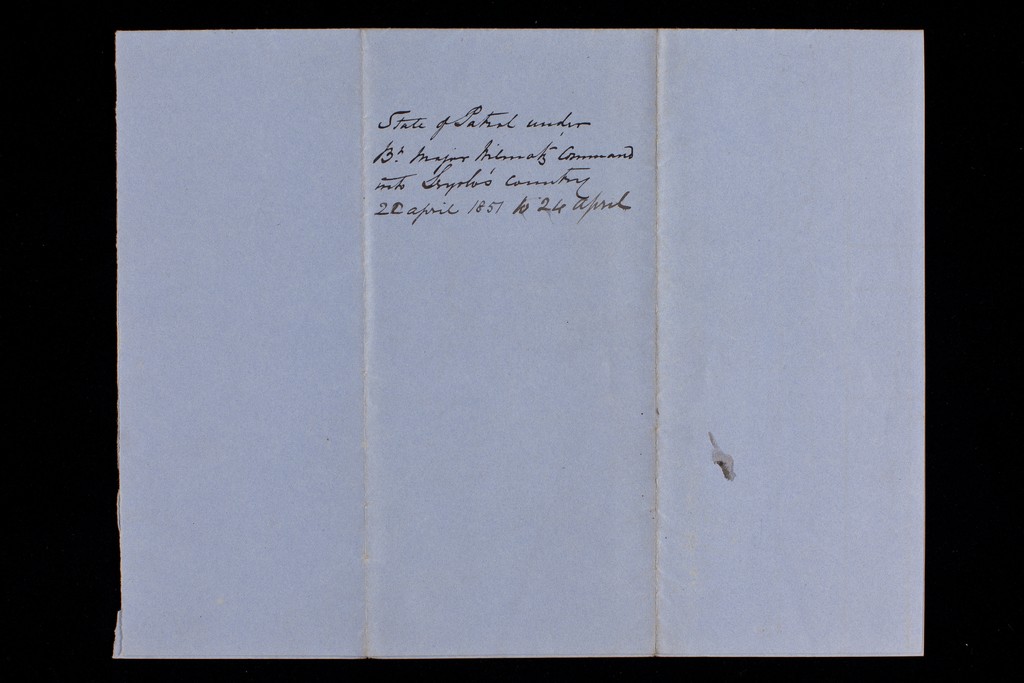 State of Patrol under
Bt. Major Wilmot's Command
into Seyolo's Country
22 april 1851 to 24 April